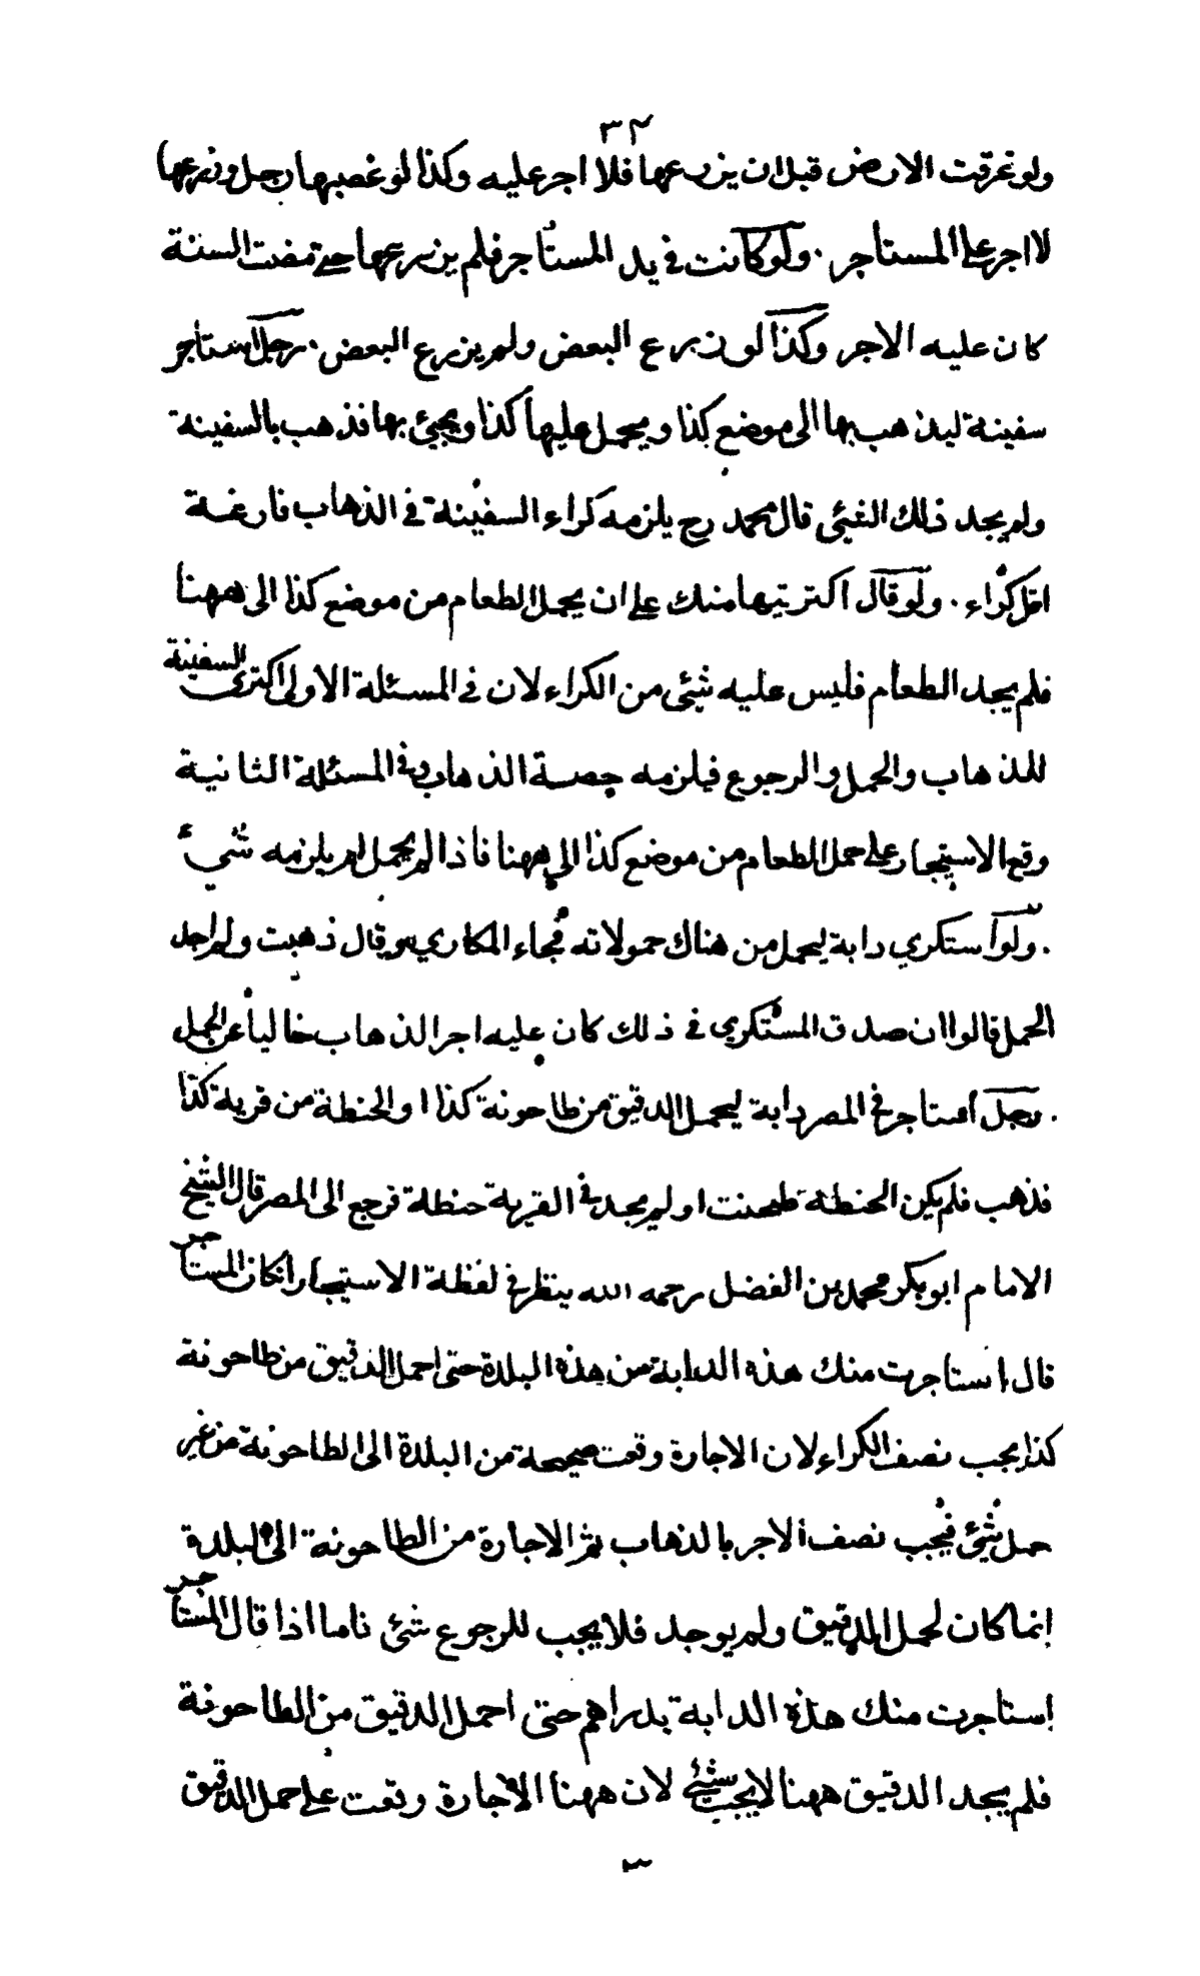 ٣٢
ولو غرقت الارض قبل ان يزرعها فلا اجر عليه وكذا لو غصبها رجل وزرعها
لا اجر على المستاجر . ولو كانت في يد المستأجر فلم يزرعها حتى مضت السنة
كان عليه الاجر وكذا لو زرع البعض ولم يزرع البعض . رجل استأجر
سفينة ليذهب بها الى موضع كذا ويحمل عليها كذا ويجيئ بها فذهب بالسفينة
ولم يجد ذلك الشيئ قال محمد رح يلزمه كراء السفينة في الذهاب فارغة
اقل كراء . ولو قال اكتريتها منك على ان يحمل الطعام من موضع كذا الى ههنا
فلم يجد الطعام فليس عليه شيئ من الكراء لان في المسئلة الاولى اكترى السفينة
للذهاب والحمل والرجوع فيلزمه حصة الذهاب وفي المسئلة الثانية
وقع الاستيجار على حمل الطعام من موضع كذا الى ههنا فاذا لم يحمل لم يلزمه شيئ
. ولو استكري دابة ليحمل من هناك حمولاته فجاء المكاري وقال ذهبت ولم اجد
الحمل قالوا ان صدق المستكري في ذلك كان عليه اجر الذهاب خالياً عن الحمل
. رجل استاجر في المصر دابة ليحمل الدقيق من طاحونة كذا او الحنطة من قرية كذا
فذهب فلم يكن الحنطة طحنت او لم يجد في القرية حنطة فرجع الى المصر قال الشيخ
الامام ابو بكر محمد بن الفضل رحمه الله ينظر في لفظة الاستيجار ان كان المستأجر
قال استاجرت منك هذه الدابة من هذه البلدة حتى احمل الدقيق من طاحونة
كذا يجب نصف الكراء لان الاجارة وقعت صحيحة من البلدة الى الطاحونة من غير
حمل شيئ فيجب نصف الاجر بالذهاب ثم الاجارة من الطاحونة الى البلدة
انما كان لحمل الدقيق ولم يوجد فلا يجب للرجوع شئ فاما اذا قال المستأجر
استاجرت منك هذه الدابة بدراهم حتى احمل الدقيق من الطاحونة
فلم يجد الدقيق ههنا لا يجب شيئ لان ههنا الاجارة وقعت على حمل الدقيق